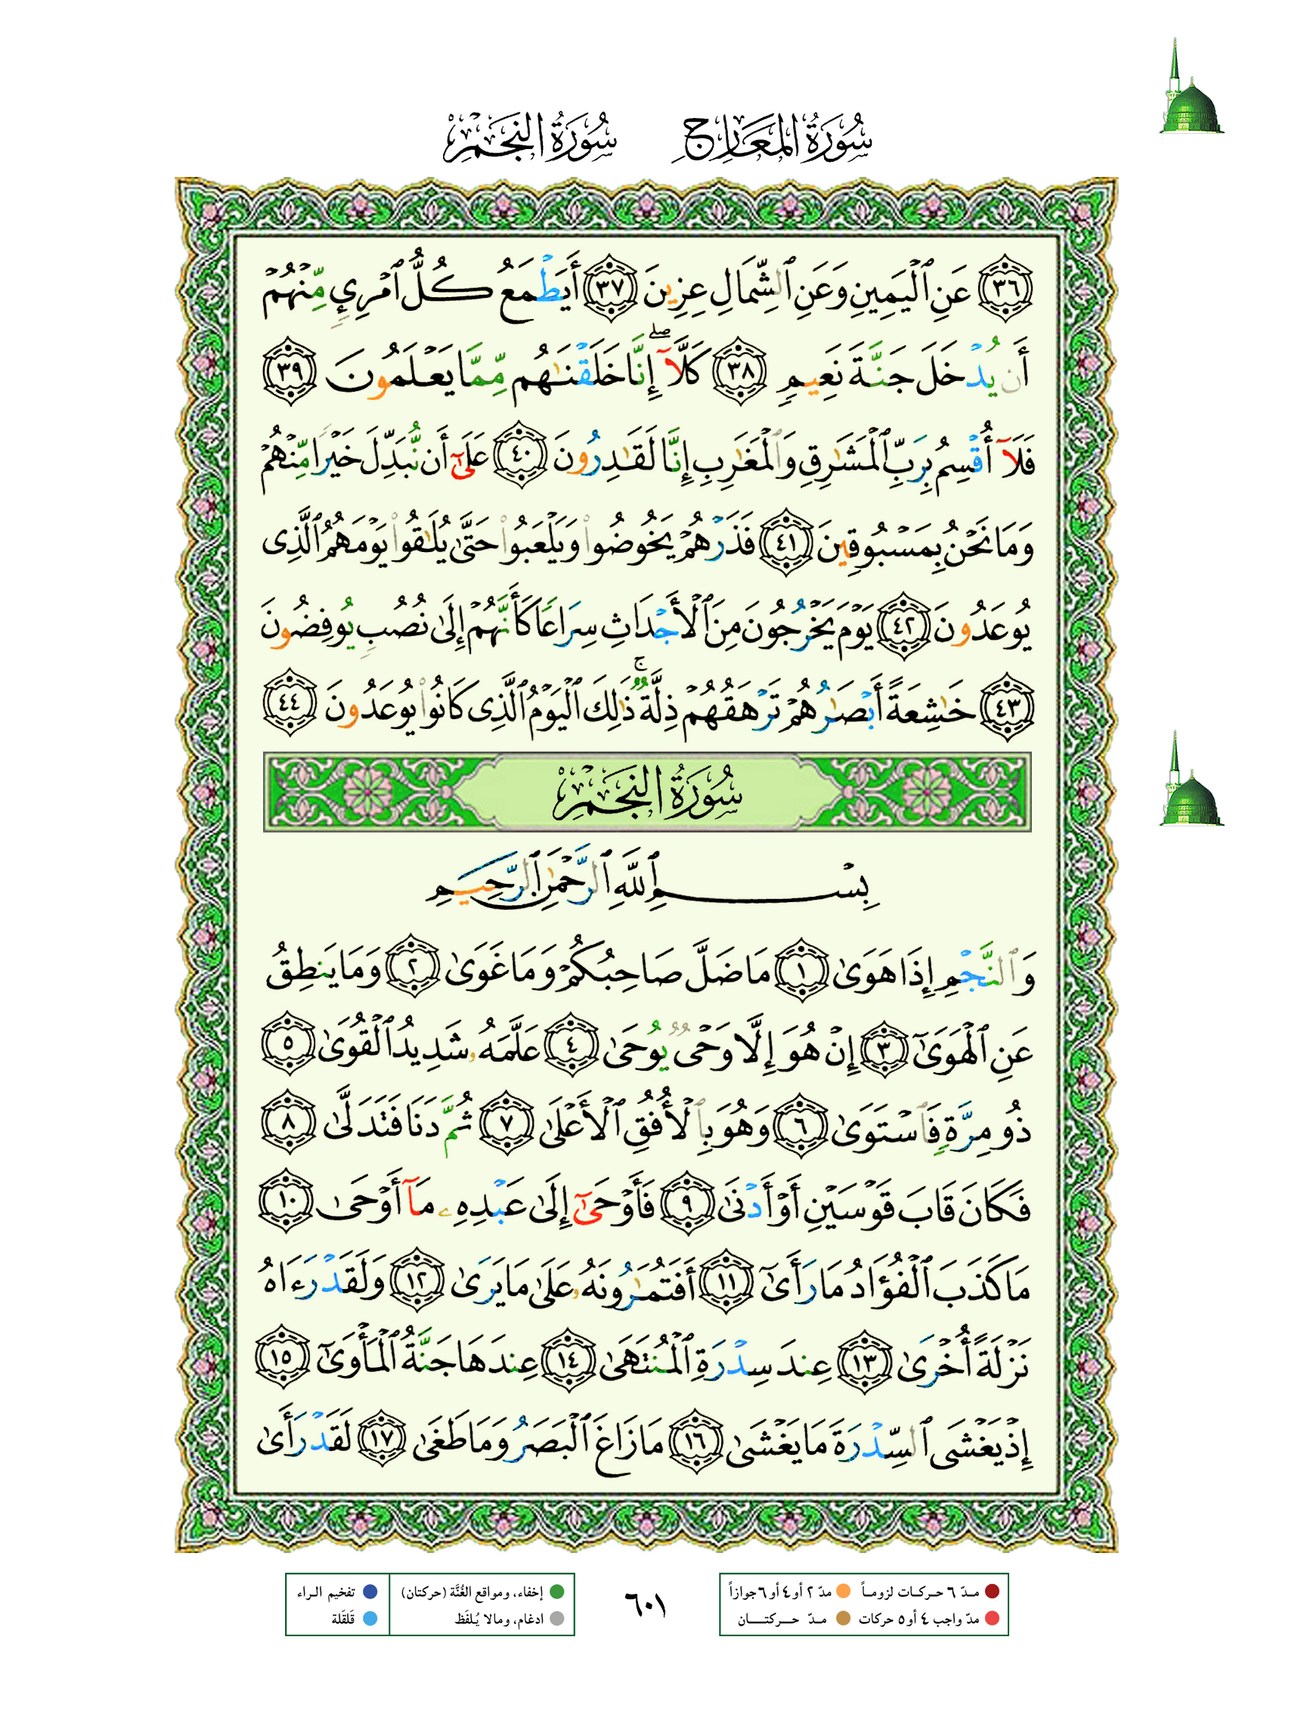 سُورَةُ المَعَارِجِ سُورَةُ النَّجْمِ
٣٦ عَنِ ٱلْيَمِينِ وَعَنِ ٱلشِّمَالِ عِزِينَ ٣٧ أَيَطْمَعُ كُلُّ ٱمْرِئٍ مِّنْهُمْ
أَن يُدْخَلَ جَنَّةَ نَعِيمٍ ٣٨ كَلَّآ ۖ إِنَّا خَلَقْنَٰهُم مِّمَّا يَعْلَمُونَ ٣٩
فَلَآ أُقْسِمُ بِرَبِّ ٱلْمَشَٰرِقِ وَٱلْمَغَٰرِبِ إِنَّا لَقَٰدِرُونَ ٤٠ عَلَىٰٓ أَن نُّبَدِّلَ خَيْرًا مِّنْهُمْ
وَمَا نَحْنُ بِمَسْبُوقِينَ ٤١ فَذَرْهُمْ يَخُوضُوا۟ وَيَلْعَبُوا۟ حَتَّىٰ يُلَٰقُوا۟ يَوْمَهُمُ ٱلَّذِى
يُوعَدُونَ ٤٢ يَوْمَ يَخْرُجُونَ مِنَ ٱلْأَجْدَاثِ سِرَاعًا كَأَنَّهُمْ إِلَىٰ نُصُبٍ يُوفِضُونَ
٤٣ خَٰشِعَةً أَبْصَٰرُهُمْ تَرْهَقُهُمْ ذِلَّةٌ ۚ ذَٰلِكَ ٱلْيَوْمُ ٱلَّذِى كَانُوا۟ يُوعَدُونَ ٤٤
سُورَةُ النَّجْمِ
بِسْمِ ٱللَّهِ ٱلرَّحْمَٰنِ ٱلرَّحِيمِ
وَٱلنَّجْمِ إِذَا هَوَىٰ ١ مَا ضَلَّ صَاحِبُكُمْ وَمَا غَوَىٰ ٢ وَمَا يَنطِقُ
عَنِ ٱلْهَوَىٰٓ ٣ إِنْ هُوَ إِلَّا وَحْىٌ يُوحَىٰ ٤ عَلَّمَهُۥ شَدِيدُ ٱلْقُوَىٰ ٥
ذُو مِرَّةٍ فَٱسْتَوَىٰ ٦ وَهُوَ بِٱلْأُفُقِ ٱلْأَعْلَىٰ ٧ ثُمَّ دَنَا فَتَدَلَّىٰ ٨
فَكَانَ قَابَ قَوْسَيْنِ أَوْ أَدْنَىٰ ٩ فَأَوْحَىٰٓ إِلَىٰ عَبْدِهِۦ مَآ أَوْحَىٰ ١٠
مَا كَذَبَ ٱلْفُؤَادُ مَا رَأَىٰٓ ١١ أَفَتُمَٰرُونَهُۥ عَلَىٰ مَا يَرَىٰ ١٢ وَلَقَدْ رَءَاهُ
نَزْلَةً أُخْرَىٰ ١٣ عِندَ سِدْرَةِ ٱلْمُنتَهَىٰ ١٤ عِندَهَا جَنَّةُ ٱلْمَأْوَىٰٓ ١٥
إِذْ يَغْشَى ٱلسِّدْرَةَ مَا يَغْشَىٰ ١٦ مَا زَاغَ ٱلْبَصَرُ وَمَا طَغَىٰ ١٧ لَقَدْ رَأَىٰ
مـدّ ٦ حـركـات لزومـاً مدّ ٢ أو ٤ أو ٦ جوازاً
مدّ واجب ٤ أو ٥ حركات مـدّ حــركتــــان
٦٠١
إخفاء، ومواقع الغُنَّة (حركتان) تفخيم الـراء
ادغام، ومالا يُـلفَظ قلقلة